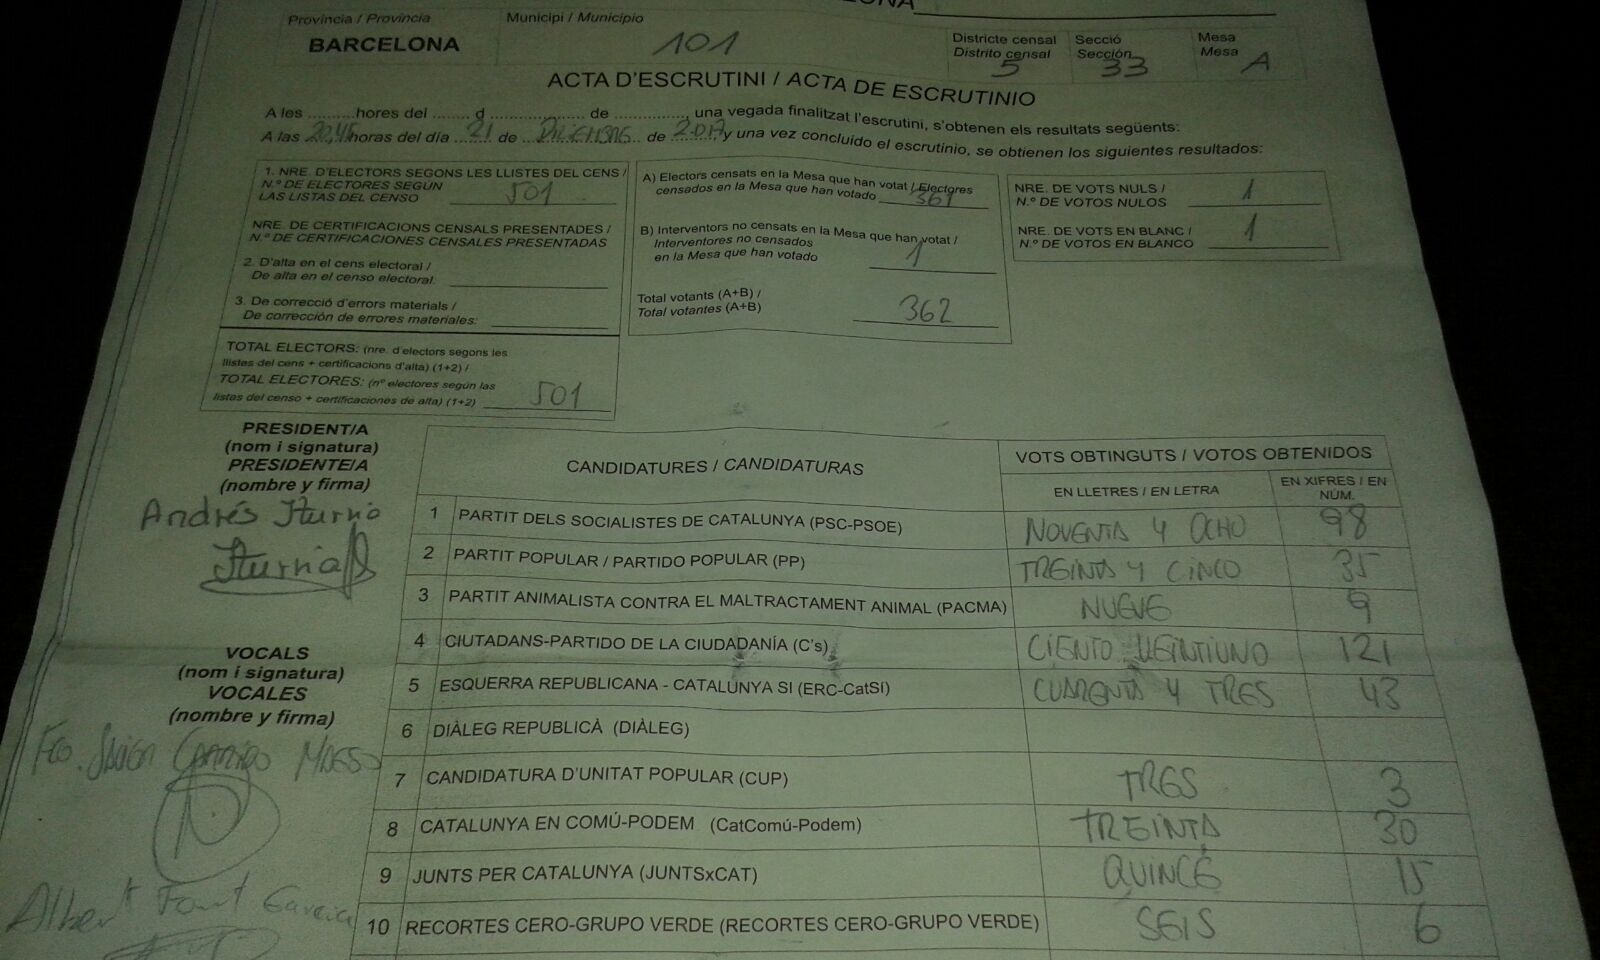 Província / Provincia
BARCELONA
Municipi / Municipio
101
Districte censal
Distrito censal
5
Secció
Sección
33
Mesa
Mesa
A
ACTA D'ESCRUTINI / ACTA DE ESCRUTINIO
A les ........hores del ....... d ...................... de .............. una vegada finalitzat l'escrutini, s'obtenen els resultats següents:
A las 20,45 horas del día 21 de DICIEMBRE de 2.017 y una vez concluido el escrutinio, se obtienen los siguientes resultados:
1. NRE. D'ELECTORS SEGONS LES LLISTES DEL CENS /
N.º DE ELECTORES SEGÚN
LAS LISTAS DEL CENSO 501
NRE. DE CERTIFICACIONS CENSALS PRESENTADES /
N.º DE CERTIFICACIONES CENSALES PRESENTADAS
2. D'alta en el cens electoral /
De alta en el censo electoral:
3. De correcció d'errors materials /
De corrección de errores materiales:
TOTAL ELECTORS: (nre. d'electors segons les
llistes del cens + certificacions d'alta) (1+2) /
TOTAL ELECTORES: (nº electores según las
listas del censo + certificaciones de alta) (1+2) 501
A) Electors censats en la Mesa que han votat / Electores
censados en la Mesa que han votado 361
B) Interventors no censats en la Mesa que han votat /
Interventores no censados
en la Mesa que han votado 1
Total votants (A+B) /
Total votantes (A+B) 362
NRE. DE VOTS NULS /
N.º DE VOTOS NULOS 1
NRE. DE VOTS EN BLANC /
N.º DE VOTOS EN BLANCO 1
PRESIDENT/A
(nom i signatura)
PRESIDENTE/A
(nombre y firma)
Andrés Iturria
Iturria
VOCALS
(nom i signatura)
VOCALES
(nombre y firma)
Fco. Javier Garrido
Albert Font Garcia
CANDIDATURES / CANDIDATURAS
VOTS OBTINGUTS / VOTOS OBTENIDOS
EN LLETRES / EN LETRA
EN XIFRES / EN
NÚM.
1 PARTIT DELS SOCIALISTES DE CATALUNYA (PSC-PSOE) NOVENTA Y OCHO 98
2 PARTIT POPULAR / PARTIDO POPULAR (PP) TREINTA Y CINCO 35
3 PARTIT ANIMALISTA CONTRA EL MALTRACTAMENT ANIMAL (PACMA) NUEVE 9
4 CIUTADANS-PARTIDO DE LA CIUDADANÍA (C's) CIENTO VEINTIUNO 121
5 ESQUERRA REPUBLICANA - CATALUNYA SI (ERC-CatSI) CUARENTA Y TRES 43
6 DIÀLEG REPUBLICÀ (DIÀLEG)
7 CANDIDATURA D'UNITAT POPULAR (CUP) TRES 3
8 CATALUNYA EN COMÚ-PODEM (CatComú-Podem) TREINTA 30
9 JUNTS PER CATALUNYA (JUNTSxCAT) QUINCE 15
10 RECORTES CERO-GRUPO VERDE (RECORTES CERO-GRUPO VERDE) SEIS 6